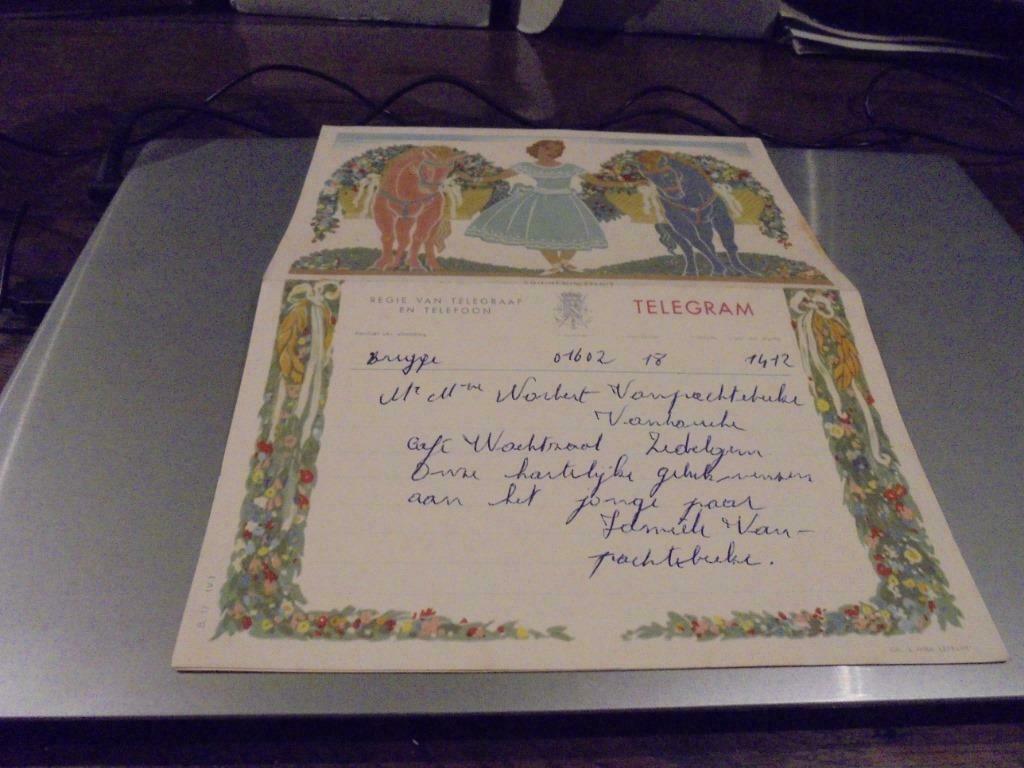 REGIE VAN TELEGRAAF
EN TELEFOON
TELEGRAM
Brugge 01602 18 1412
Mr Mme Norbert Vanpachtebeke
Vanhoucke
Café Wachtzaal Zedelgem
Onze hartelijke gelukwensen
aan het jonge paar
Familie Van-
pachtebeke.